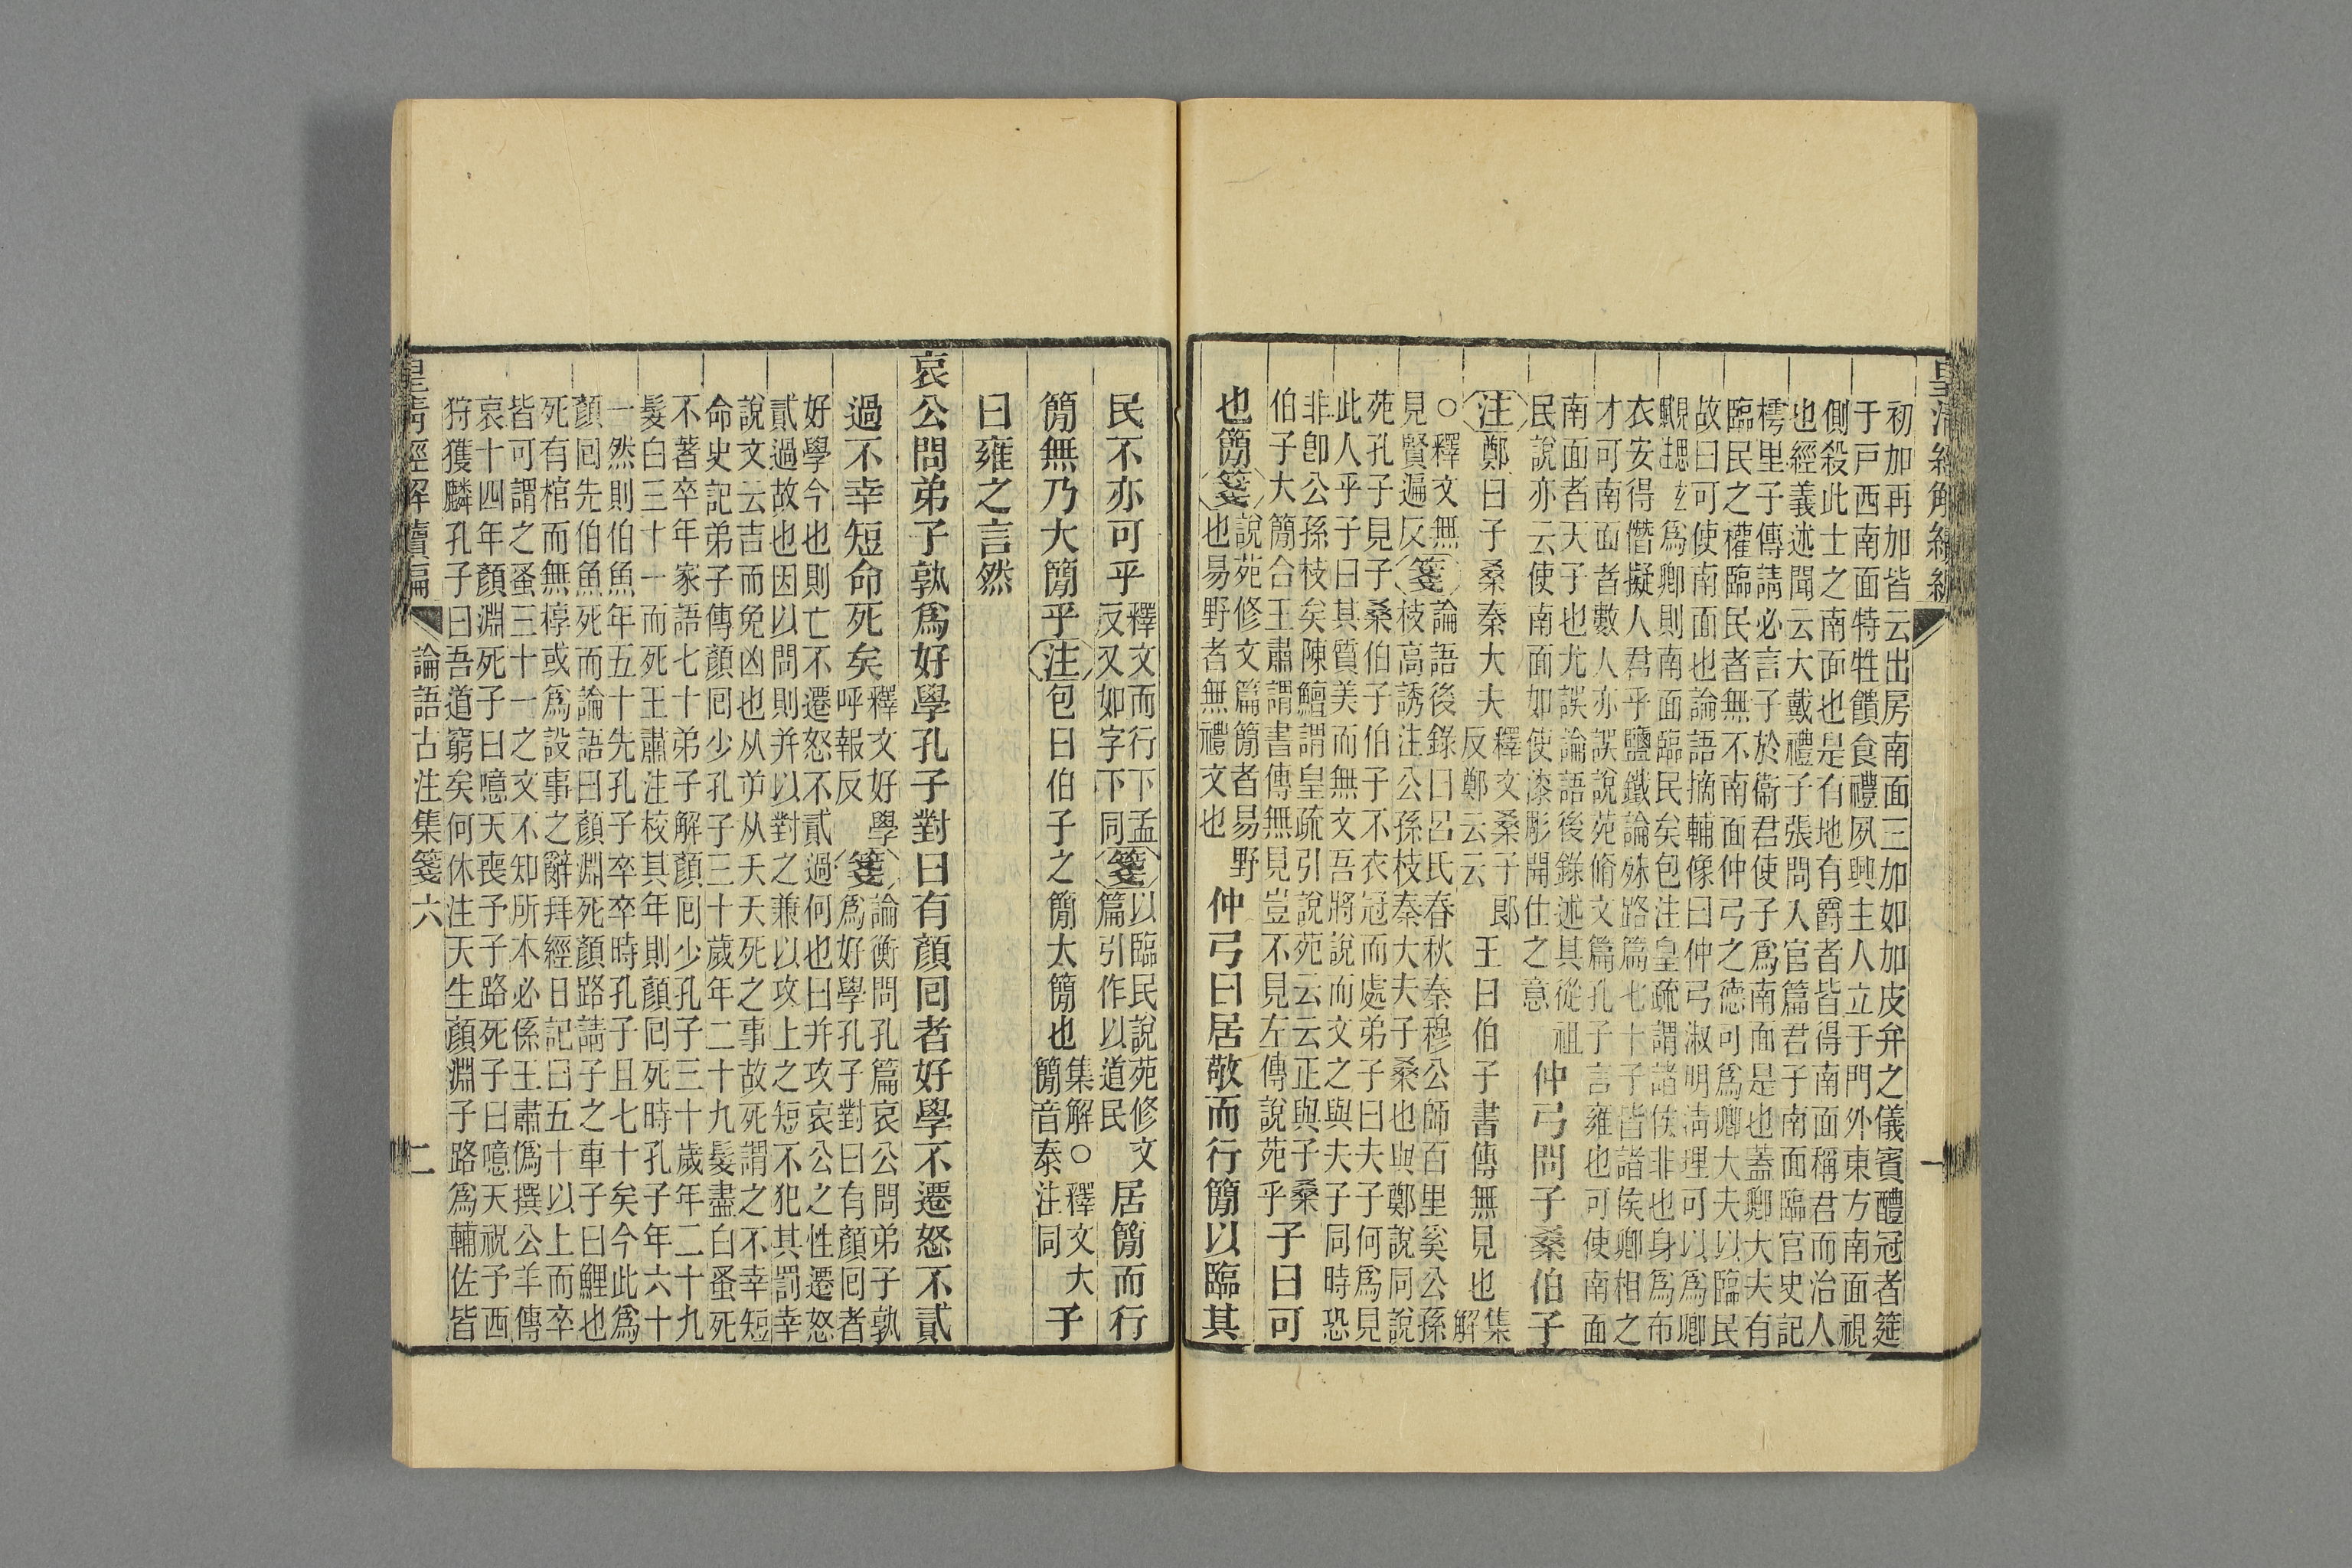 皇清經解續編 一
初加再加皆云出房南面三加如加皮弁之儀賓醴冠者筵
于戶西南面特牲饋食禮夙興主人立于門外東方南面視
側殺此士之南面也是有地有爵者皆得南面稱君而治人
也經義述聞云大戴禮子張問入官篇君子南面臨官史記
樗里子傳請必言子於衞君使子爲南面是也蓋卿大夫有
臨民之權臨民者無不南面仲弓之德可爲卿大夫以臨民
故曰可使南面也論語摘輔像曰仲弓淑明淸理可以爲卿
爲卿則南面臨民矣包注皇疏謂諸侯非也身爲布
衣安得僭擬人君乎鹽鐵論殊路篇七十子皆諸侯卿相之
才可南面者數人亦誤說苑脩文篇孔子言雍也可使南面
南面者天子也尤誤論語後錄述其從祖
民說亦云使南面如使漆彫開仕之意
仲弓問子桑伯子
注 鄭曰子桑秦大夫 釋文桑子郎反鄭云云 王曰伯子書傳無見也 集解
○釋文無見賢遍反 箋 論語後錄曰呂氏春秋秦穆公師百里奚公孫
枝高誘注公孫枝秦大夫子桑也與鄭說同說
苑孔子見子桑伯子伯子不衣冠而處弟子曰夫子何爲見
此人乎子曰其質美而無文吾將說而文之與夫子同時恐
非卽公孫枝矣陳鱣謂皇疏引說苑云云正與子桑
伯子大簡合王肅謂書傳無見豈不見左傳說苑乎
子曰可
也簡 箋 說苑修文篇簡者易野也易野者無禮文也 仲弓曰居敬而行簡以臨其
民不亦可乎 釋文而行下孟反又如字下同 箋 以臨民說苑修文篇引作以道民 居簡而行
簡無乃大簡乎 注 包曰伯子之簡太簡也 集解○釋文大簡音泰注同 子
曰雍之言然
哀公問弟子孰爲好學孔子對曰有顏回者好學不遷怒不貳
過不幸短命死矣 釋文好學呼報反 箋 論衡問孔篇哀公問弟子孰
爲好學孔子對曰有顏回者
好學今也則亡不遷怒不貳過何也曰并攻哀公之性遷怒
貳過故也因以問則并以對之兼以攻上之短不犯其罰幸
說文云吉而免凶也从屰从夭夭死之事故死謂之不幸短
命史記弟子傳顏回少孔子三十歲年二十九髮盡白蚤死
不著卒年家語七十弟子解顏回少孔子三十歲年二十九
髮白三十一而死王肅注校其年則顏回死時孔子年六十
一然則伯魚年五十先孔子卒卒時孔子且七十矣今此爲
顏回先伯魚死而論語曰顏淵死顏路請子之車子曰鯉也
死有棺而無椁或爲設事之辭拜經日記曰五十以上而卒
皆可謂之蚤三十一之文不知所本必係王肅僞撰公羊傳
哀十四年顏淵死子曰噫天喪予子路死子曰噫天祝予西
狩獲麟孔子曰吾道窮矣何休注天生顏淵子路爲輔佐皆
皇清經解續編 論語古注集箋六 二